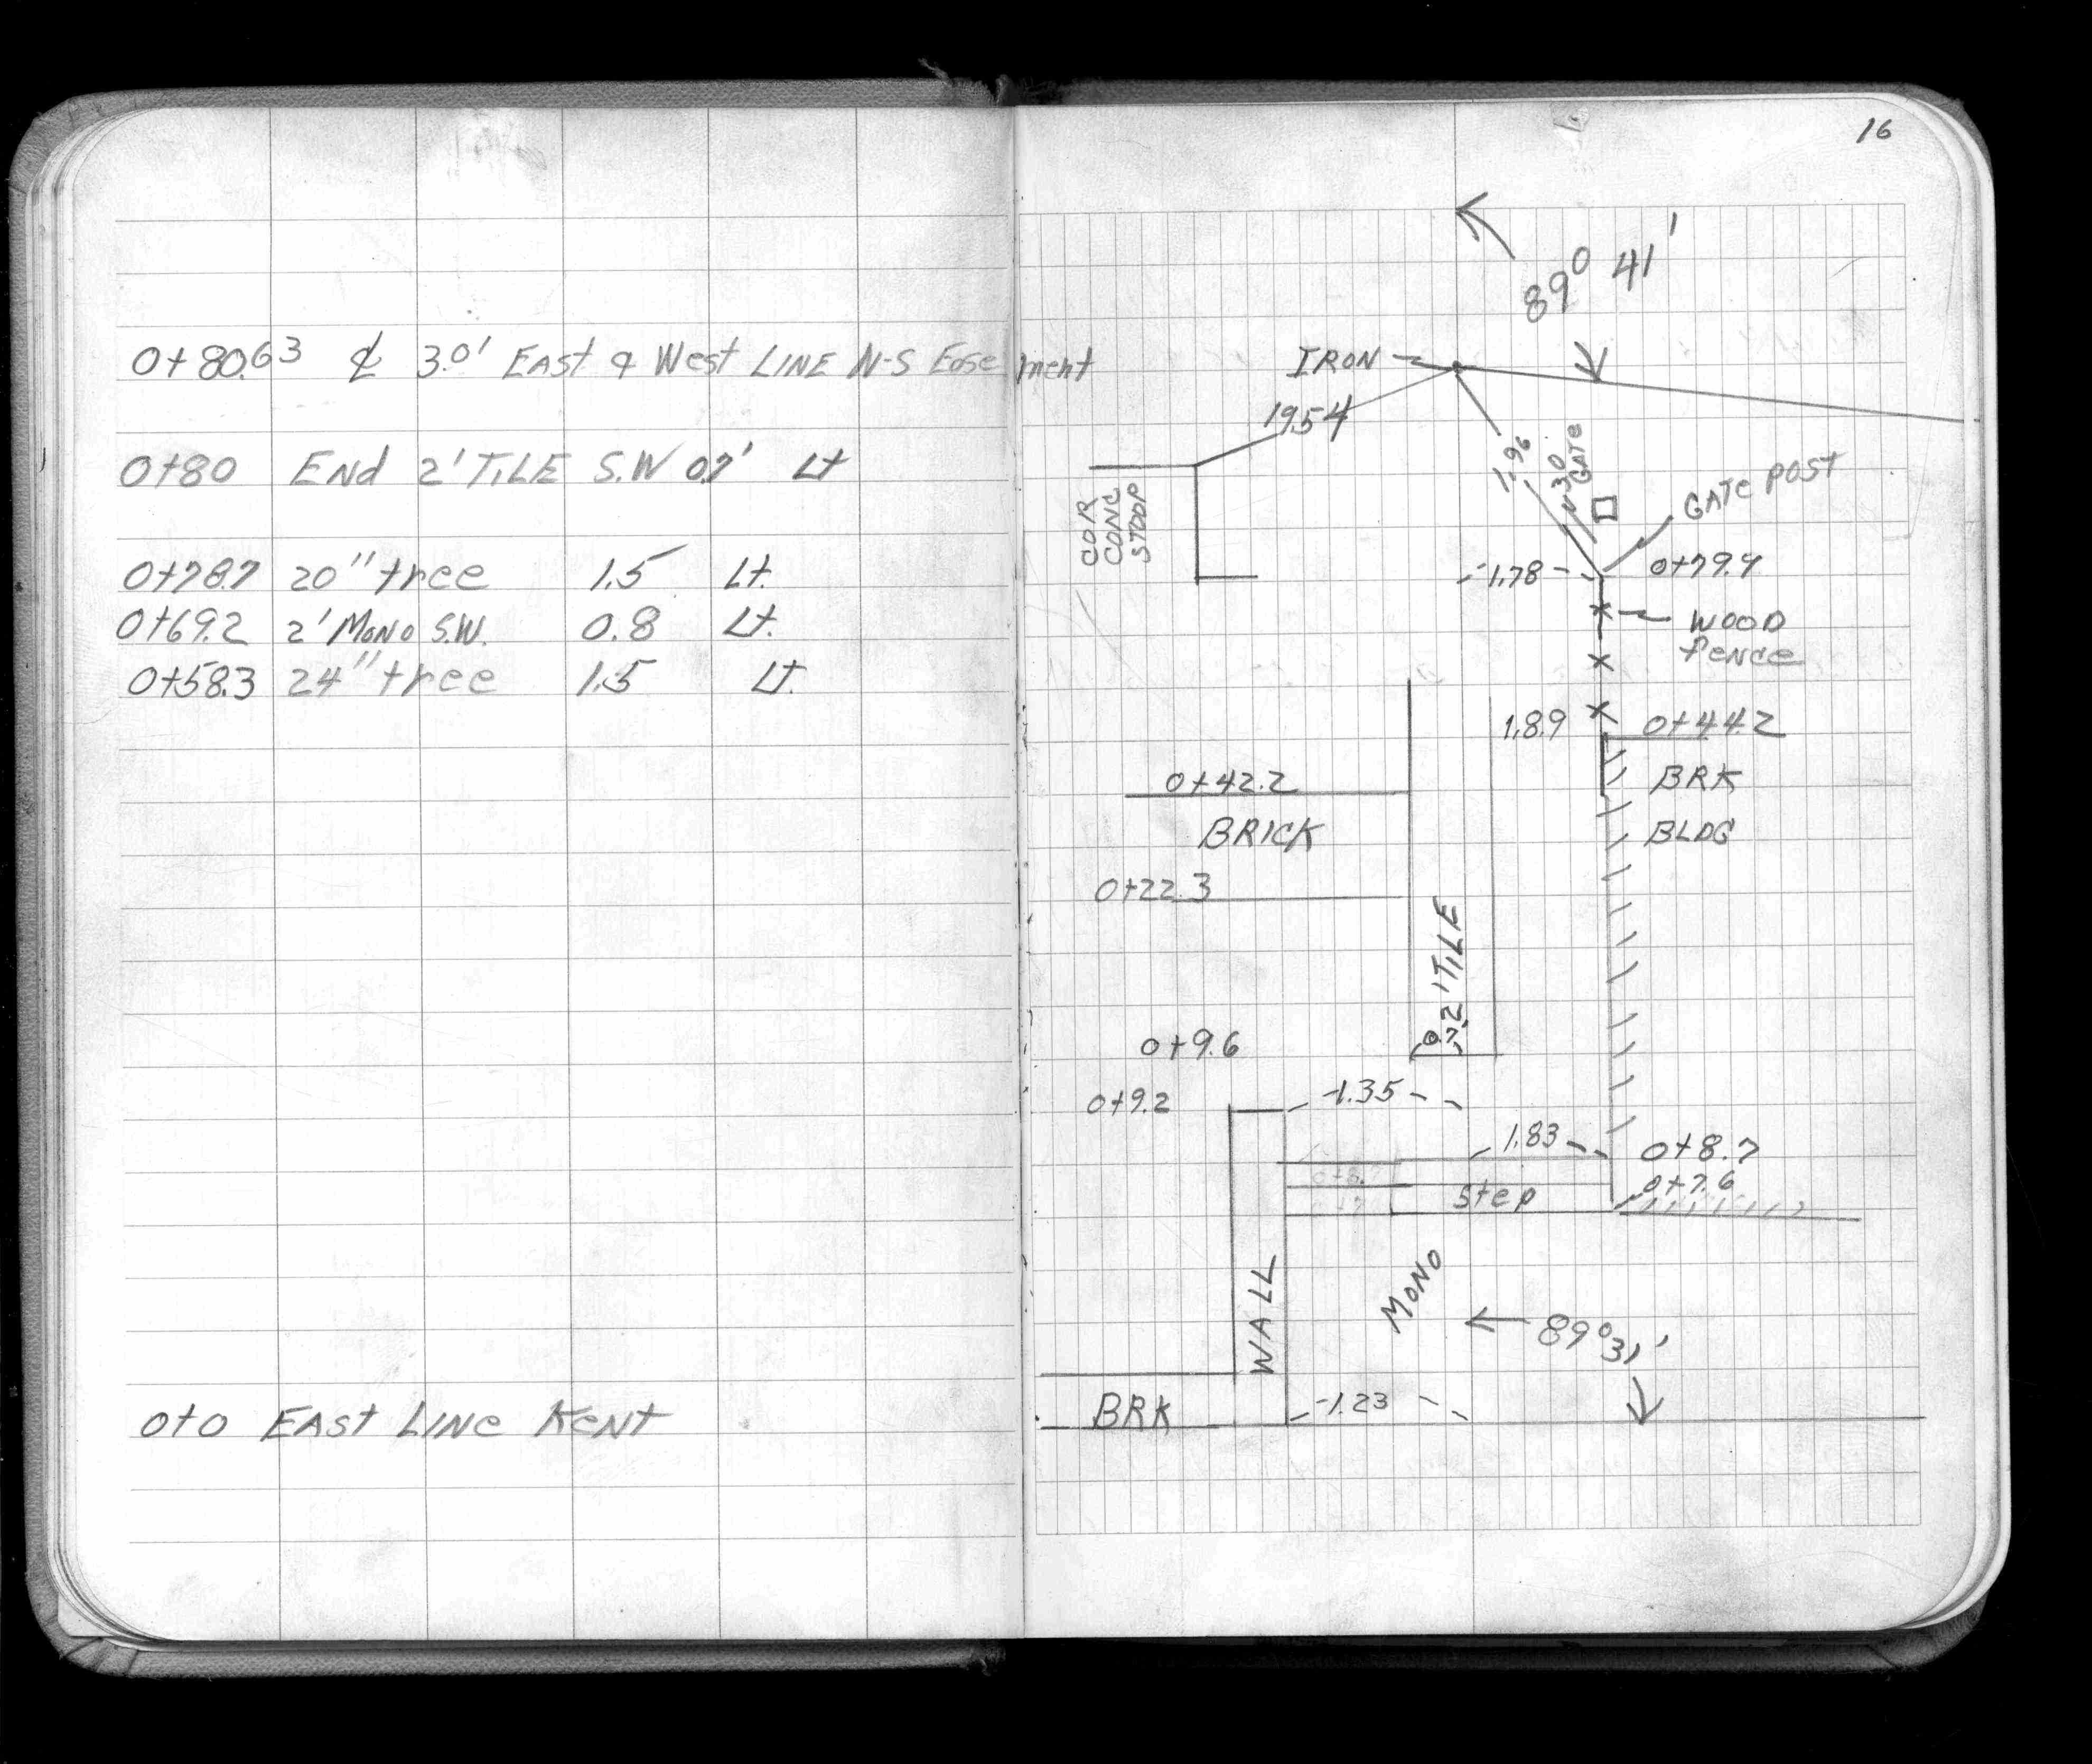 0+80.63 ₵ 3.0' EAST & West LINE N-S Easement
0+80 ENd 2' TILE S.W 0.7' Lt
0+78.7 20" tree 1.5 Lt.
0+69.2 2' MONO S.W. 0.8 Lt.
0+58.3 24" tree 1.5 Lt.
0+0 EAST LINE KENT
16
89° 41'
IRON
19.54
1.96
3.0
GATE
GATE POST
COR
CONC
STOOP
1.78
0+79.4
WOOD
fence
1.89
0+44.2
0+42.2
BRK
BRICK
BLDG
0+22.3
2' TILE
0.7
0+9.6
0+9.2
1.35
1.83
0+8.7
0+7.6
Step
WALL
MONO
89° 31'
BRK
1.23